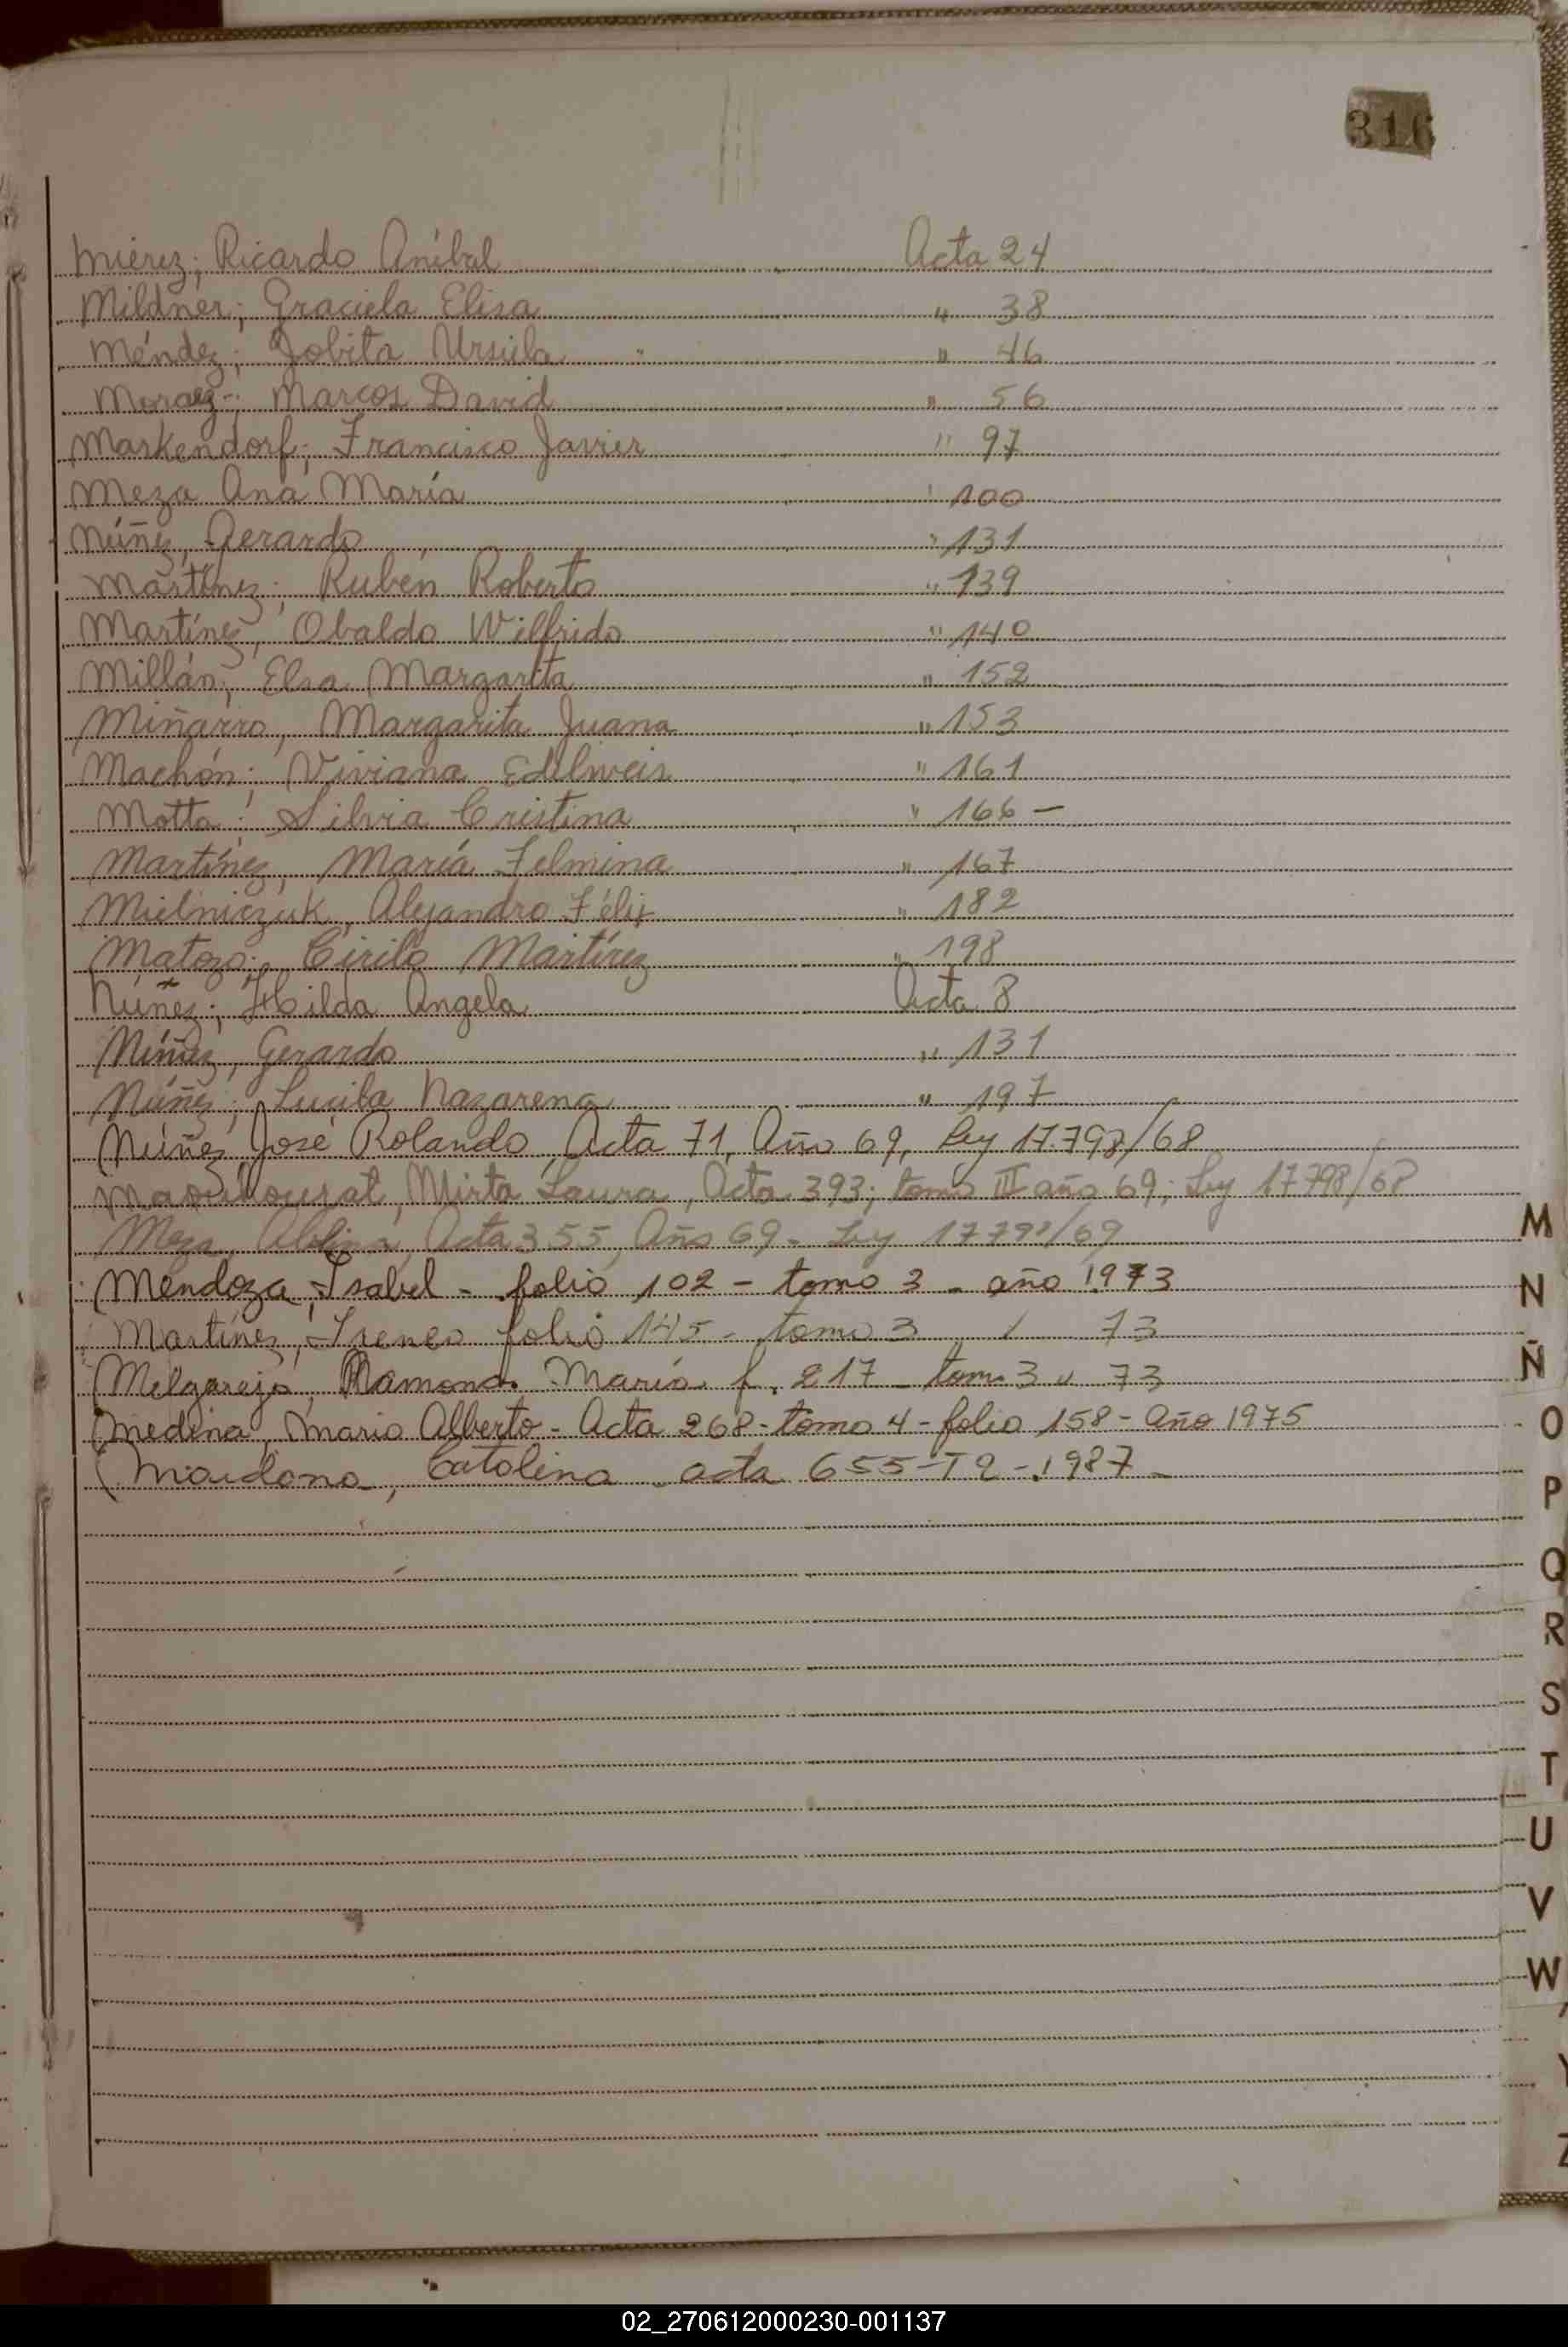 316
Miérez; Ricardo Aníbal Acta 24
Mildner; Graciela Elisa " 38
Méndez; Jobita Ursula " 46
Moraez; Marcos David " 56
Markendorf; Francisco Javier " 97
Meza Ana María " 100
Núñez, Gerardo " 131
Martínez; Rubén Roberto " 139
Martínez, Obaldo Wilfrido " 140
Millán; Elsa Margarita " 152
Miñarro, Margarita Juana " 153
Machón; Viviana Edelweis " 161
Motta; Silvia Cristina " 166 -
Martínez, María Felmina " 167
Mielniczuk, Alejandro Félix " 182
Matozo; Cirilo Martírez " 198
Núñez; Hilda Angela Acta 8
Núñez, Gerardo " 131
Núñez; Lucila Nazarena " 197
Núñez José Rolando, Acta 71, Año 69, Ley 17.798/68
Mirta Laura, Acta 393; tomo III año 69; Ley 17798/68
Meza, Acta 355, Año 69 - Ley 17798/69
Mendoza, Isabel - folio 102 - tomo 3 - año 1973
Martínez, Ireneo folio 145 - tomo 3 " 73
Melgarejo, Ramona María f. 217 - tomo 3 " 73
Medina, Mario Alberto - Acta 268 - tomo 4 - folio 158 - Año 1975
Maidana, Catalina - acta 655 - T 2 - 1987 -
M
N
Ñ
O
P
Q
R
S
T
U
V
W
Y
Z
02_270612000230-001137